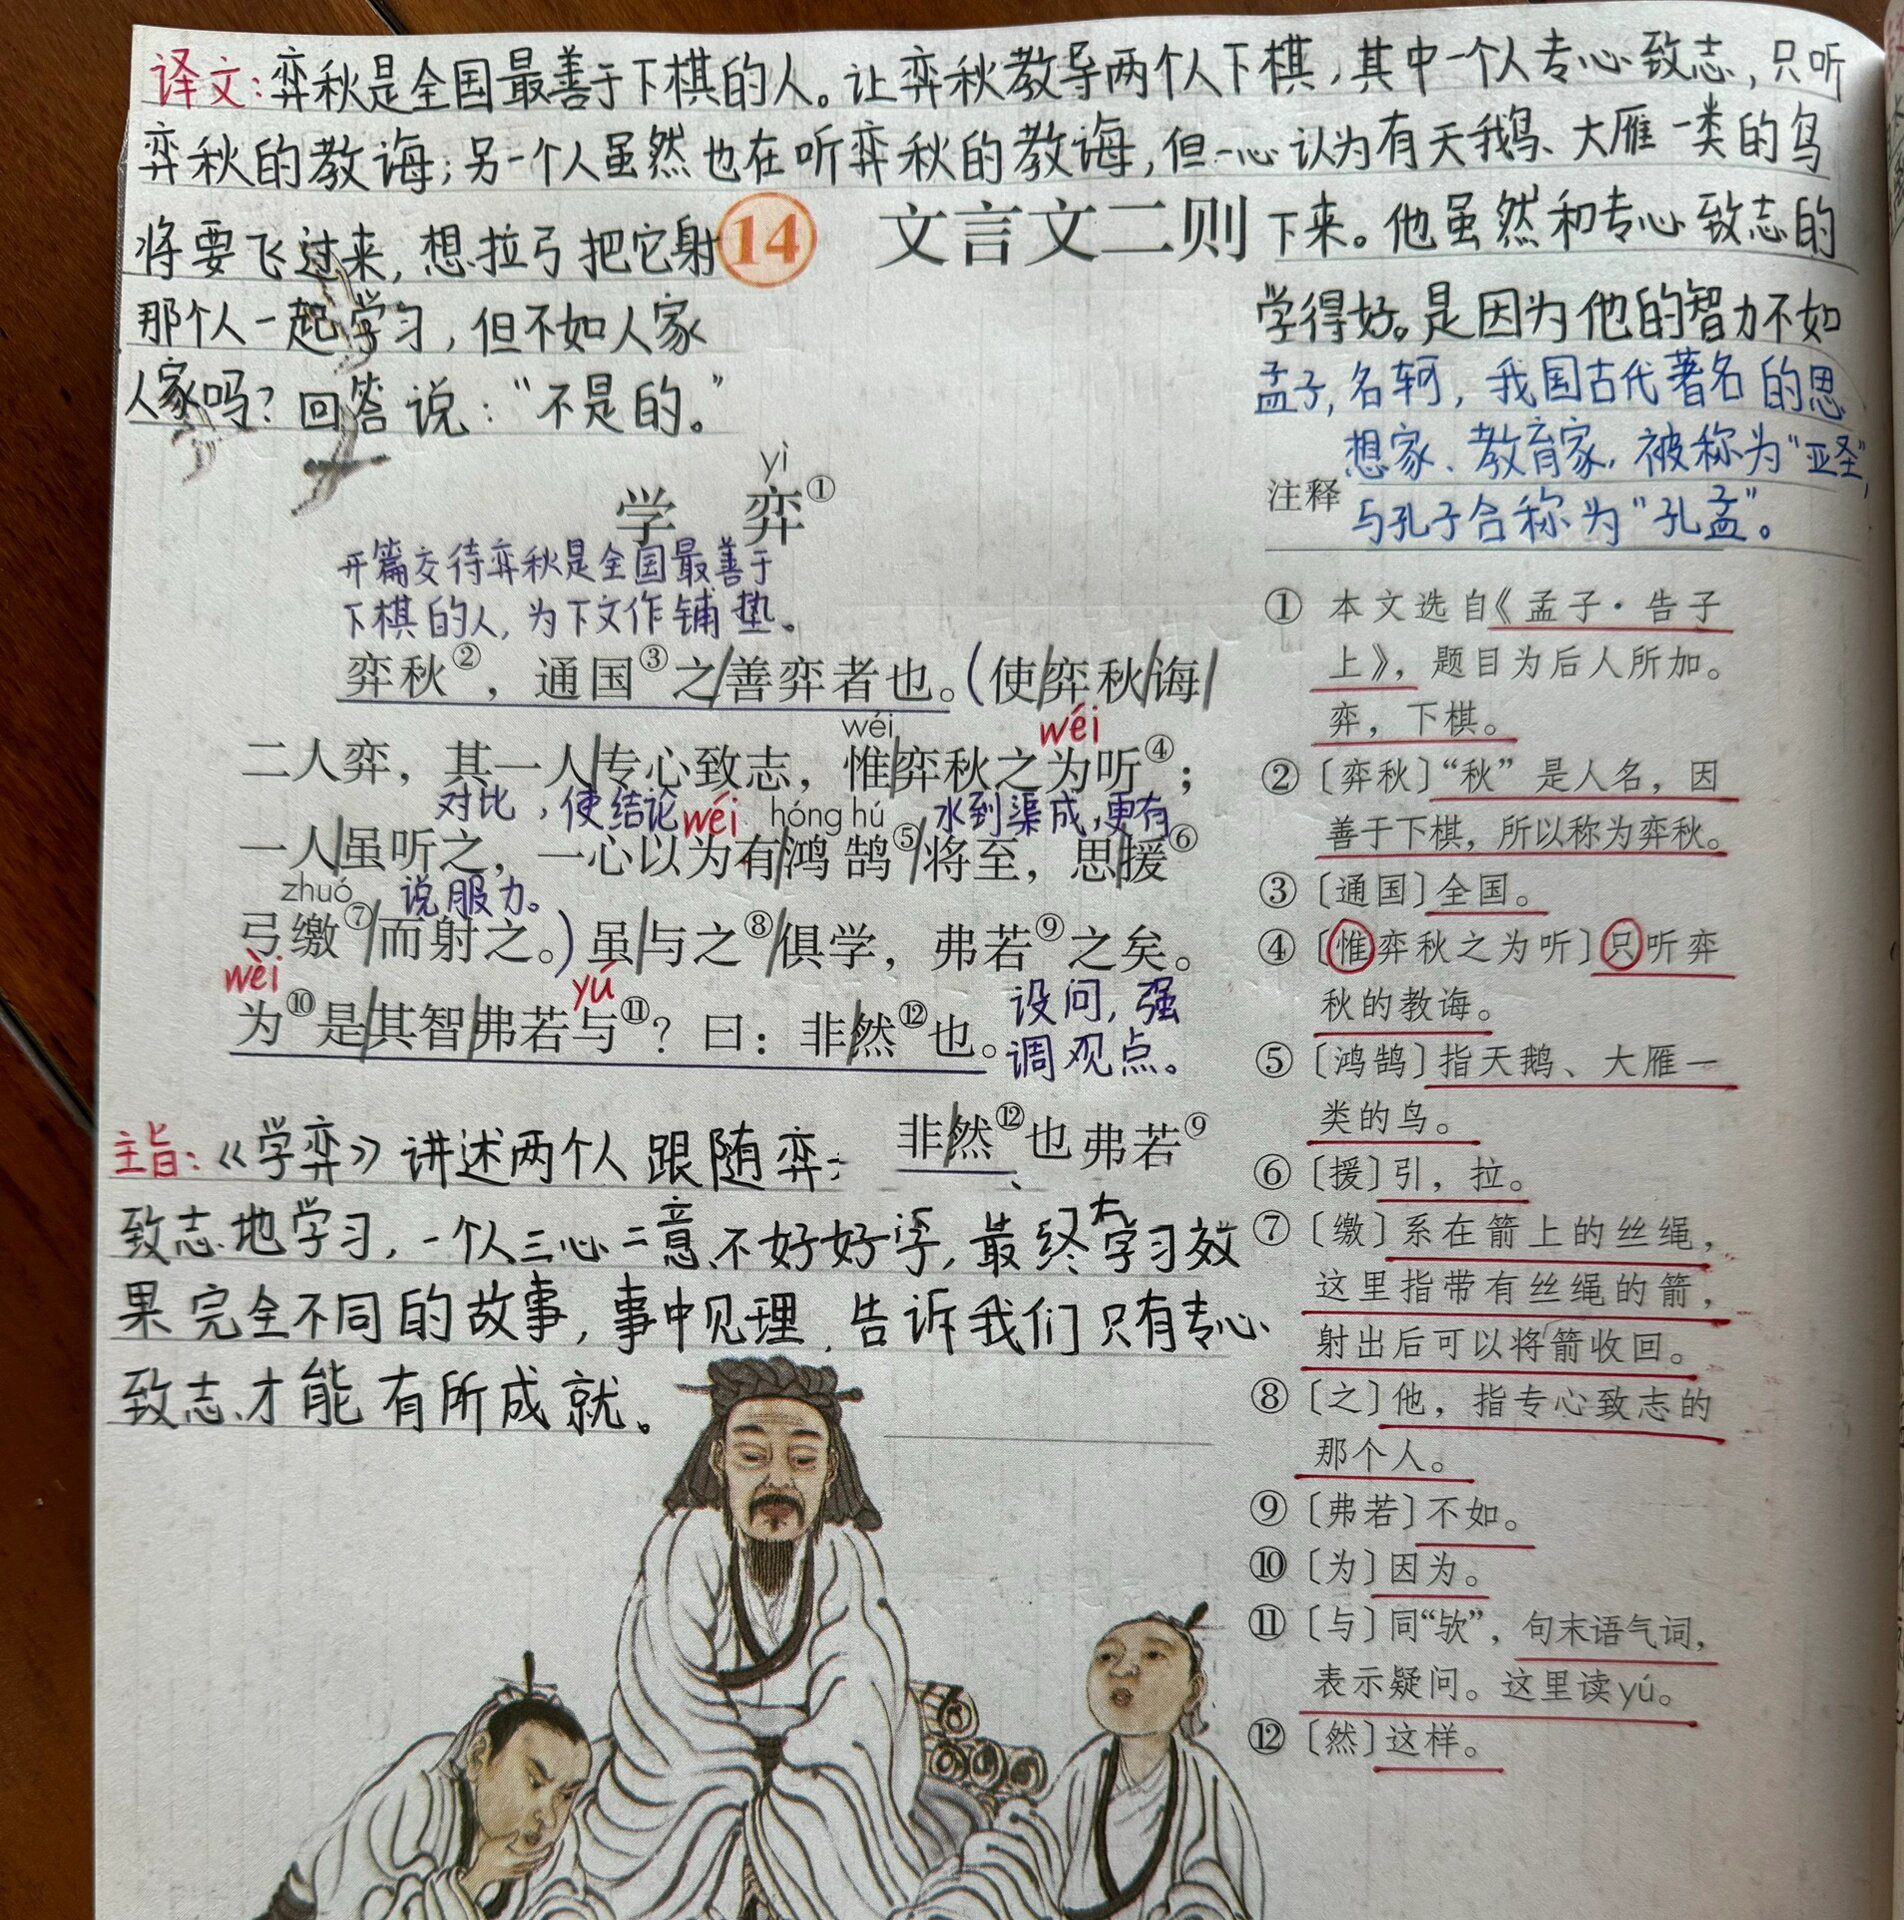 译文:弈秋是全国最善于下棋的人。让弈秋教导两个人下棋,其中一个人专心致志,只听
弈秋的教诲;另一个人虽然也在听弈秋的教诲,但一心认为有天鹅、大雁一类的鸟
将要飞过来,想拉弓把它射
14 文言文二则
下来。他虽然和专心致志的
那个人一起学习,但不如人家
学得好。是因为他的智力不如
人家吗?回答说:“不是的。”
孟子,名轲,我国古代著名的思
想家、教育家,被称为“亚圣”,
与孔子合称为“孔孟”。
yì
学 弈①
开篇交待弈秋是全国最善于
下棋的人,为下文作铺垫。
弈秋②,通国③之/善弈者也。(使/弈秋/诲/
wéi wéi
二人弈,其一人/专心致志,惟/弈秋之为听④;
对比,使结论 wéi hóng hú 水到渠成,更有
一人/虽听之,一心以为有/鸿鹄⑤/将至,思/援⑥
zhuó 说服力。
弓缴⑦/而射之。)虽/与之⑧/俱学,弗若⑨之矣。
wèi yú
为⑩是/其智/弗若与⑪?曰:非/然⑫也。
设问,强
调观点。
主旨:《学弈》讲述两个人跟随弈
非/然⑫也弗若⑨
致志地学习,一个人三心二意、不好好学,最终学习效
果完全不同的故事,事中见理,告诉我们只有专心
致志才能有所成就。
注释
① 本文选自《孟子·告子
上》,题目为后人所加。
弈,下棋。
②〔弈秋〕“秋”是人名,因
善于下棋,所以称为弈秋。
③〔通国〕全国。
④〔惟弈秋之为听〕只听弈
秋的教诲。
⑤〔鸿鹄〕指天鹅、大雁一
类的鸟。
⑥〔援〕引,拉。
⑦〔缴〕系在箭上的丝绳,
这里指带有丝绳的箭,
射出后可以将箭收回。
⑧〔之〕他,指专心致志的
那个人。
⑨〔弗若〕不如。
⑩〔为〕因为。
⑪〔与〕同“欤”,句末语气词,
表示疑问。这里读yú。
⑫〔然〕这样。